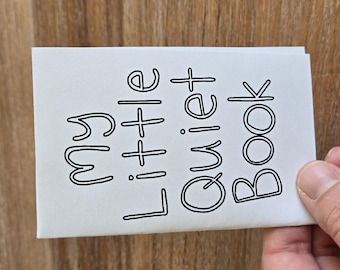 My
Little
Quiet
Book